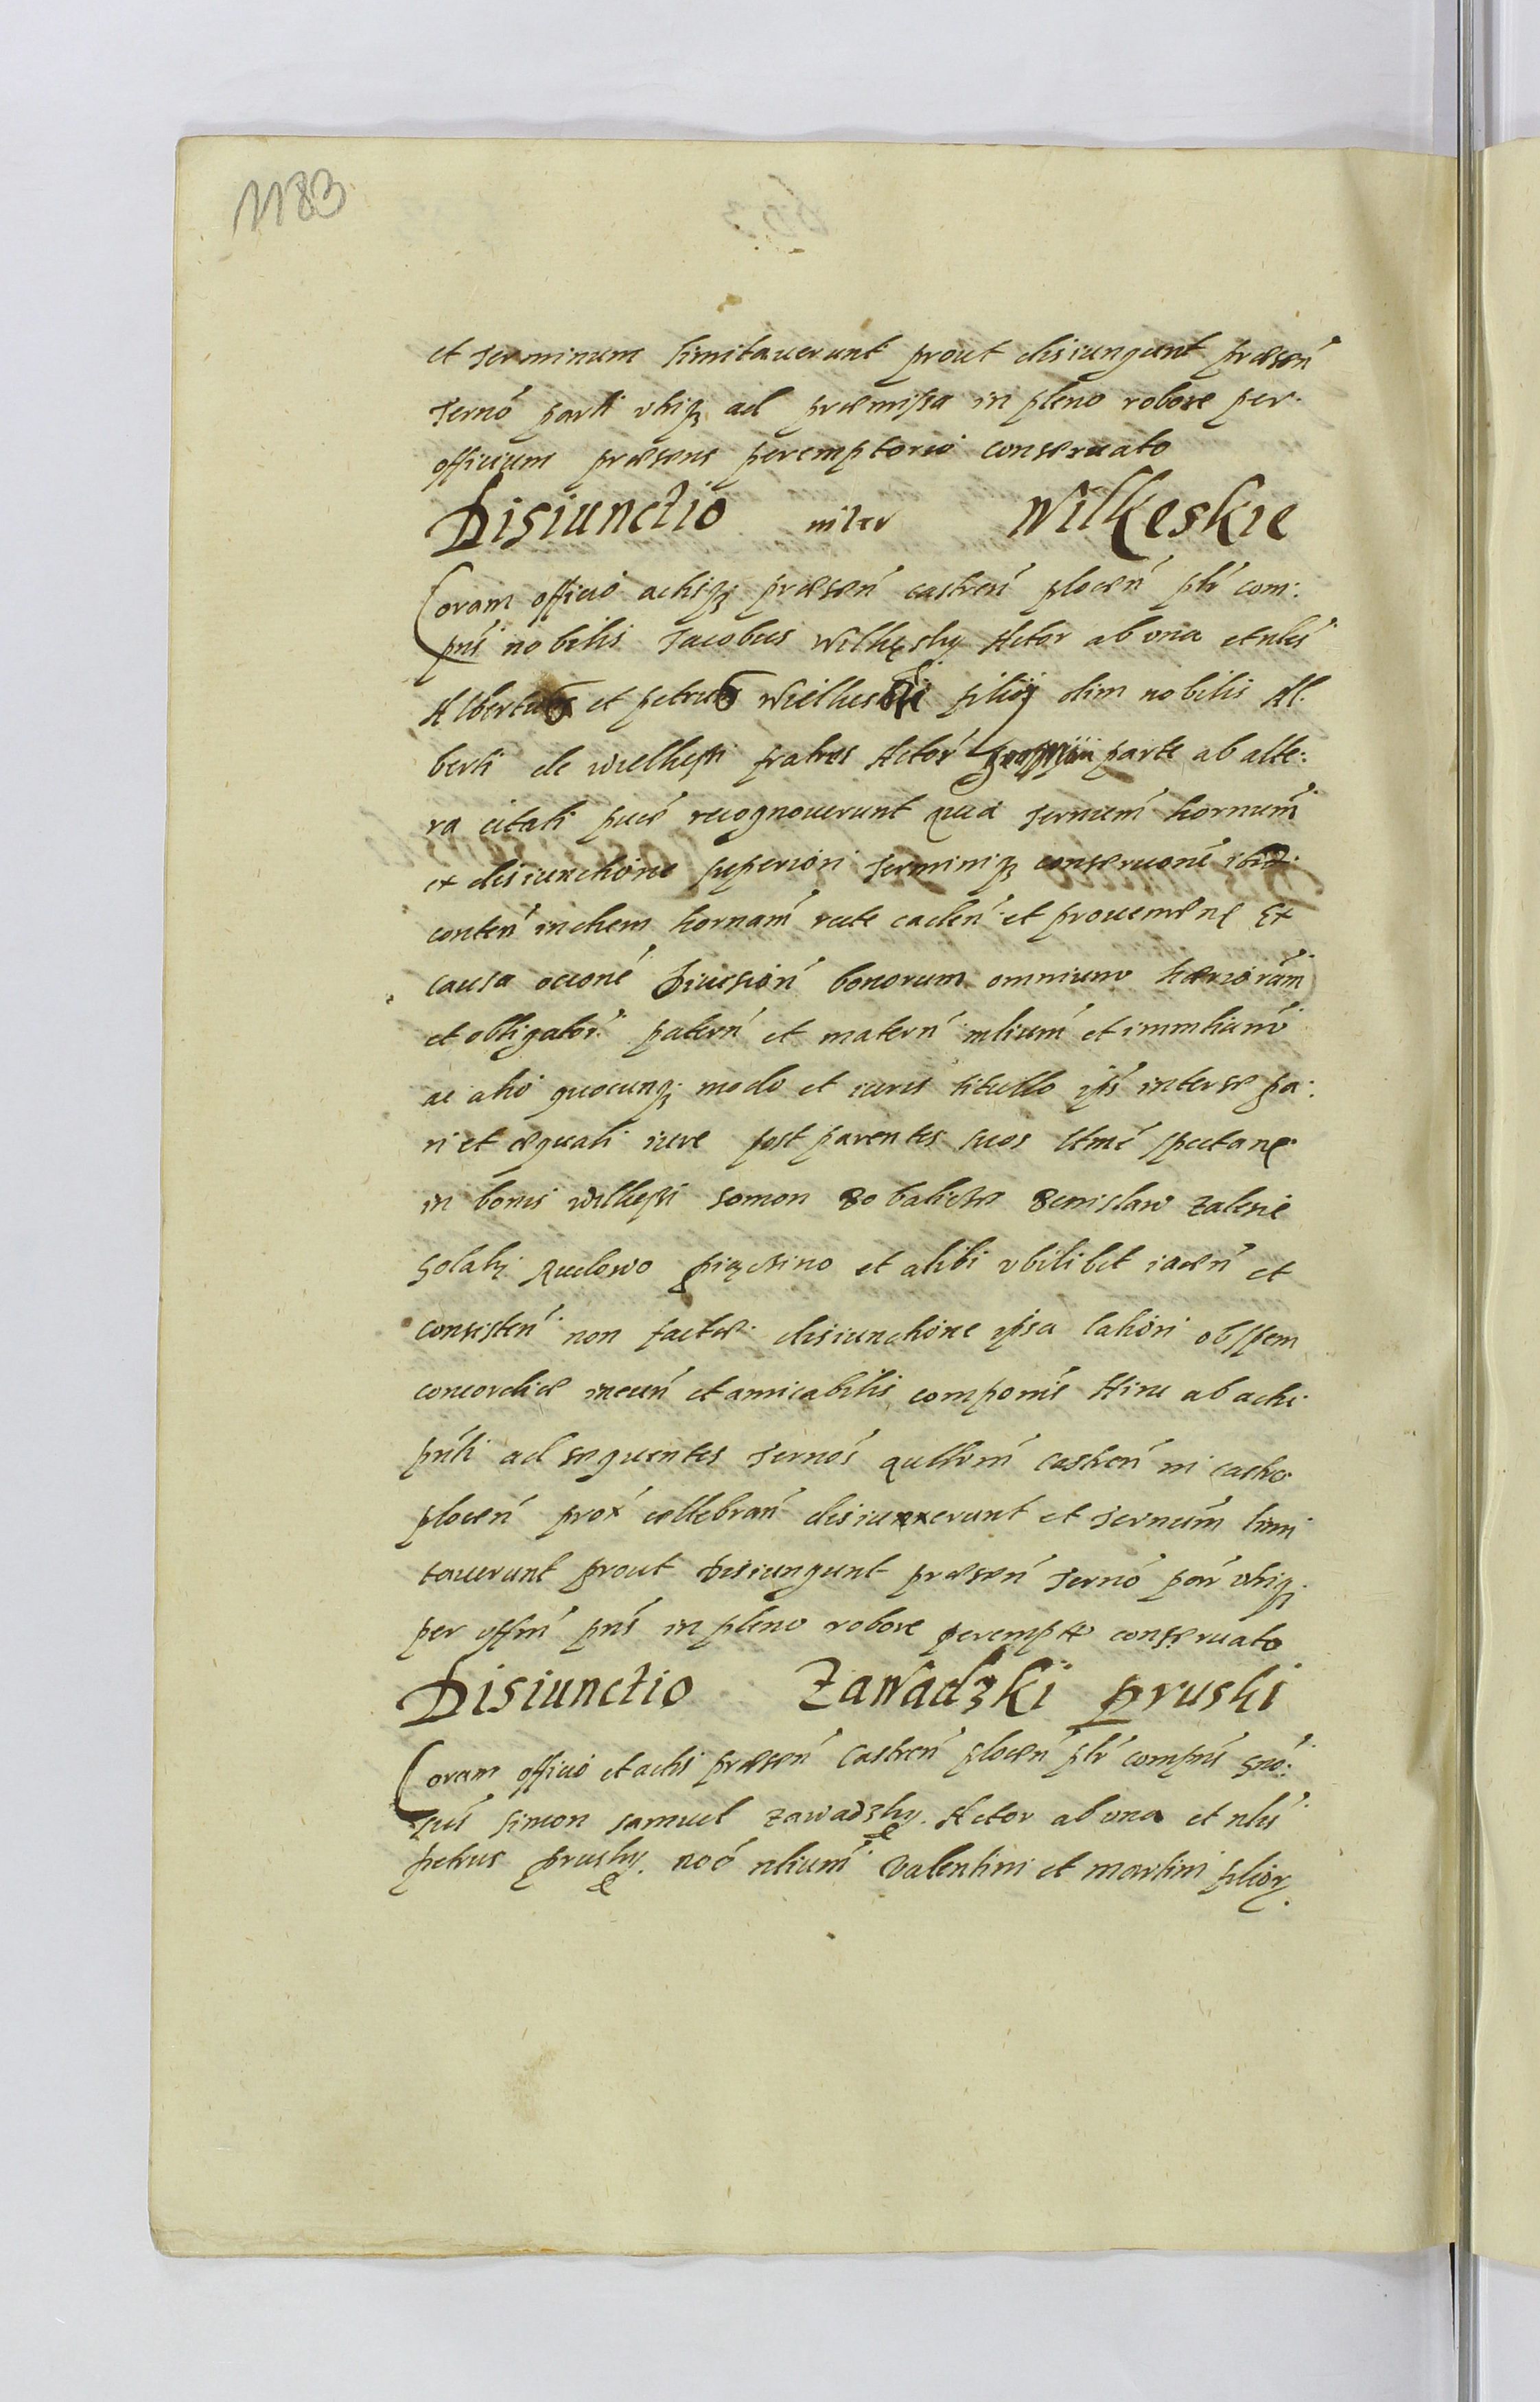 1183
et terminum limitauerunt prout disiungunt præsen
Termo parti vtriq3 ad præmissa in pleno robore per
officium præsens peremptorio conseruato
Disiunctio inter Wilkeskie
Coram officio actisq3 præsen castren plocen plr com:
pns nobilis Jacobus Wilkęsky Actor ab vna et nles
Albertus et petrus Wielkeski filii olim nobilis Al
berti de wielkęsi fratres Actor parte ab alte:
ra citati puce recognouerunt quia Termum hornum
ex disiunctione superiori Terminiq3 conseruone ibid
conten indiem hornam recte caden et prouenien Ex
causa ocione Diuision bonorum omnium hæreorum
et obligator patern et matern mlium et immlium
ac alio quocunq3 modo et iuris titullo ips inter se pa:
ri et æquali iure post parentes suos ltme spectan
in bonis wilkęsi somon zalesie
Golaty Rudowo et alibi vbilibet iacen et
consisten non factæ disiunctione ipsa lahori ob spem
concordiæ ineun et amicabilis componis Hinc ab acti
pnti ad sequentes Termos qullum castren in castro
plocen prox cellebran disiunxerunt et Termum limi
tauerunt prout Disiungunt præsen Termo par vtriq3
per offm pns in pleno robore perempto conseruato
Disiunctio Zawadzki pruski
Coram officio et actis præsen Castren plocen plr compns gnó:
sus Simon samuel zawadzky Actor ab vna et nlis
petrus prusky noó nlium Valentini et martini filior